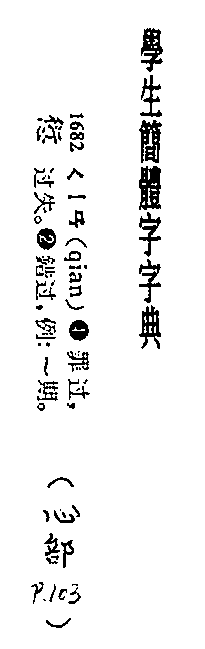 學生簡體字字典
1682 ㄑㄧㄢ(qian) ❶罪过,
愆 过失。❷錯过,例:~期。
(心部
P.103)